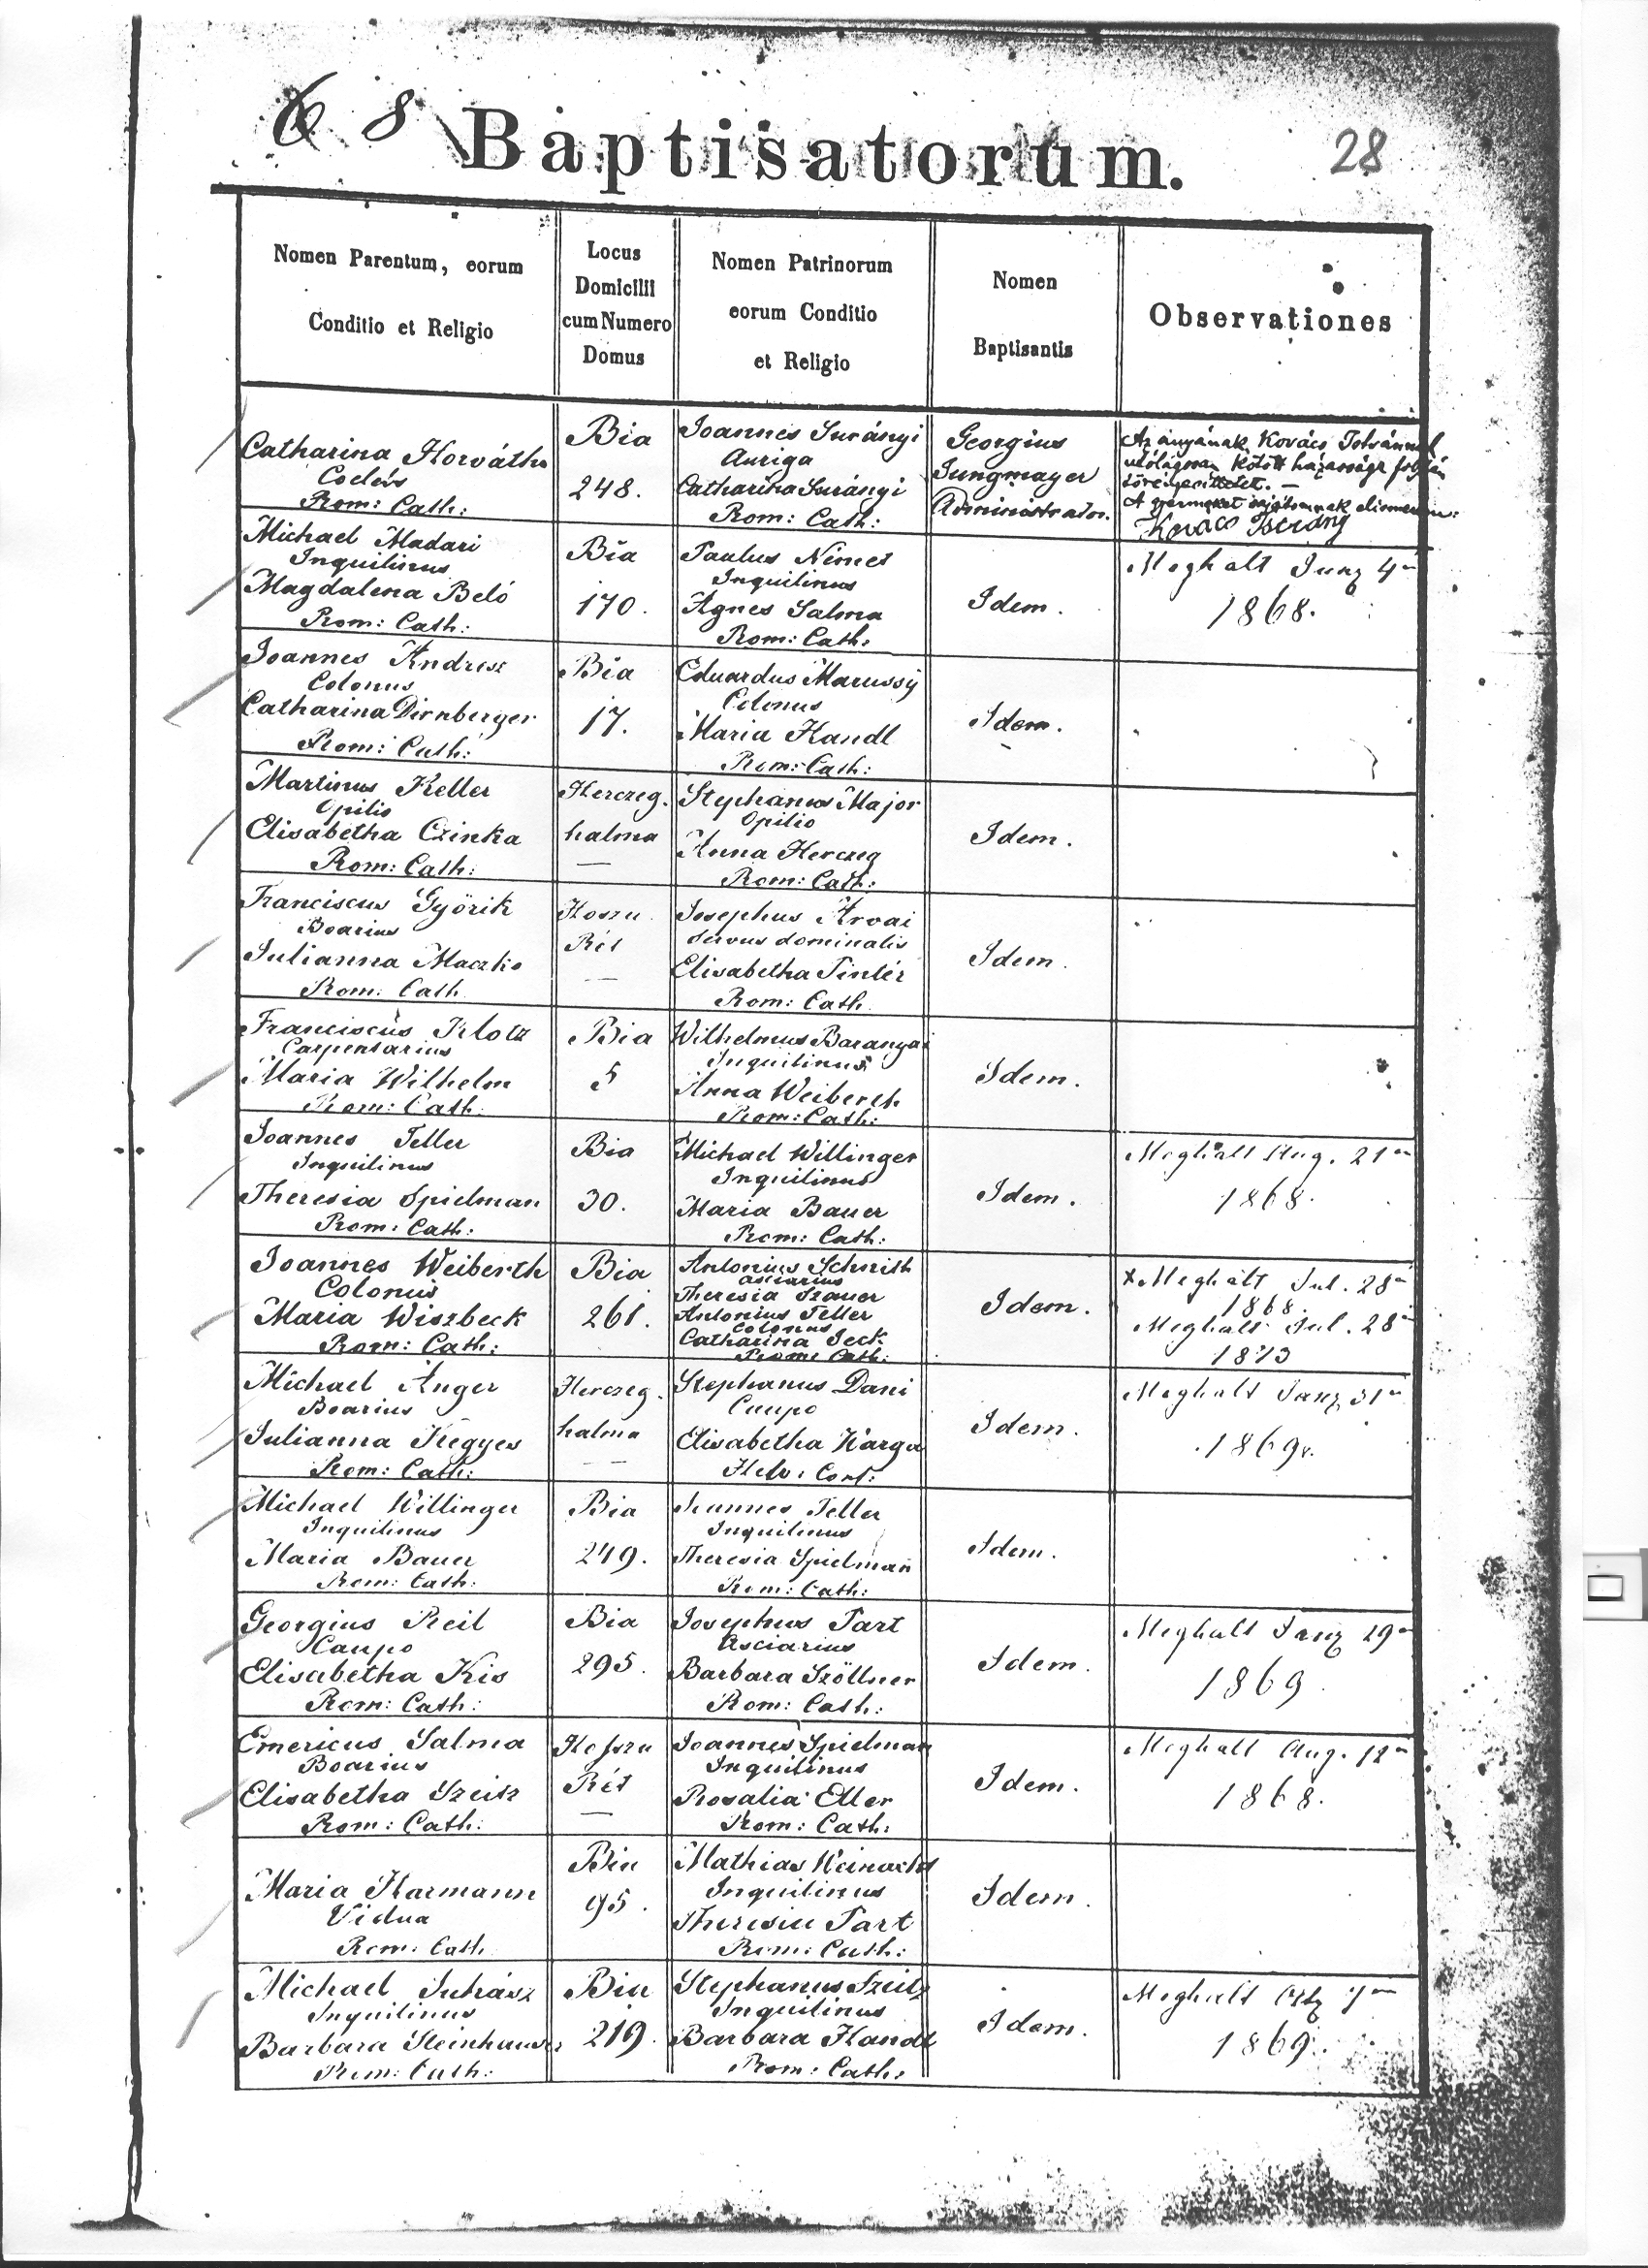 68 Baptisatorum. 28
Nomen Parentum, eorum
Conditio et Religio
Locus
Domicilii
cum Numero
Domus
Nomen Patrinorum
eorum Conditio
et Religio
Nomen
Baptisantis
Observationes
Catharina Horváth
Rom: Cath:
Bia
248.
Joannes Surányi
Auriga
Catharina Surányi
Rom: Cath:
Georgius
Jungmayer
Administrator.
Az anyának Kovács Istvánnal
utólagosan kötött házassága folytán
törvényesittetet. —
A gyermeket elismerem:
Kovács István
Michael Madari
Inquilinus
Magdalena Beló
Rom: Cath:
Bia
170.
Paulus Német
Inquilinus
Agnes Salma
Rom: Cath:
Idem.
Meghalt Juny 4én
1868.
Joannes Andress
Colonus
Catharina Dirnberger
Rom: Cath:
Bia
17.
Eduardus Marussy
Colonus
Maria Handl
Rom: Cath:
Idem.
Martinus Keller
Opilio
Elisabetha Czinka
Rom: Cath:
Herczeg.
halma
—
Stephanus Major
Opilio
Anna Herczeg
Rom: Cath:
Idem.
Franciscus Györik
Boarius
Julianna Maczko
Rom: Cath.
Hoszu
Rét
—
Josephus Arvai
Servus dominalis
Elisabetha Pintér
Rom: Cath.
Idem.
Franciscus Klotz
Carpentarius
Maria Wilhelm
Rom: Cath.
Bia
5
Wilhelmus Baranyai
Inquilinus
Anna Weiberth
Rom: Cath:
Idem.
Joannes Teller
Inquilinus
Theresia Spielman
Rom: Cath:
Bia
30.
Michael Willinger
Inquilinus
Maria Bauer
Rom: Cath:
Idem.
Meghalt Aug. 21én
1868.
Joannes Weiberth
Colonus
Maria Wiszbeck
Rom: Cath:
Bia
261.
Antonius Schmith
asciarius
Theresia Szauer
Antonius Teller
Colonus
Catharina Jeck
Rom: Cath:
Idem.
x Meghalt Jul. 28án
1868.
Meghalt Jul. 28
1873
Michael Anger
Boarius
Julianna Hegyes
Rom: Cath:
Herczeg.
halma
—
Stephanus Dani
Caupo
Elisabetha Varga
Helv: Conf:
Idem.
Meghalt Janr 31én
1869.
Michael Willinger
Inquilinus
Maria Bauer
Rom: Cath:
Bia
249.
Joannes Teller
Inquilinus
Theresia Spielman
Rom: Cath:
Idem.
Georgius Reil
Caupo
Elisabetha Kis
Rom: Cath:
Bia
295.
Josephus Tart
Asciarius
Barbara Szöllner
Rom: Cath:
Idem.
Meghalt Janr 29én
1869.
Emericus Salma
Boarius
Elisabetha Szeitz
Rom: Cath:
Hoszu
Rét
—
Joannes Spielman
Inquilinus
Rosalia Eller
Rom: Cath:
Idem.
Meghalt Aug. 12én
1868.
Maria Harmann
Vidua
Rom: Cath.
Bia
95.
Mathias Weinacht
Inquilinus
Theresia Tart
Rom: Cath:
Idem.
Michael Juhász
Inquilinus
Barbara Steinhauser
Rom: Cath:
Bia
219.
Stephanus Szeitz
Inquilinus
Barbara Handl
Rom: Cath:
Idem.
Meghalt
1869.